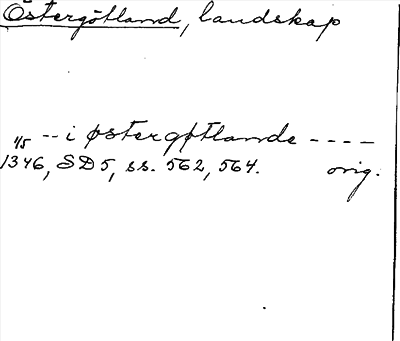 Östergötland, landskap
-- i østergøtlande ----
1/5 1346, SD 5, ss. 562, 564. orig.